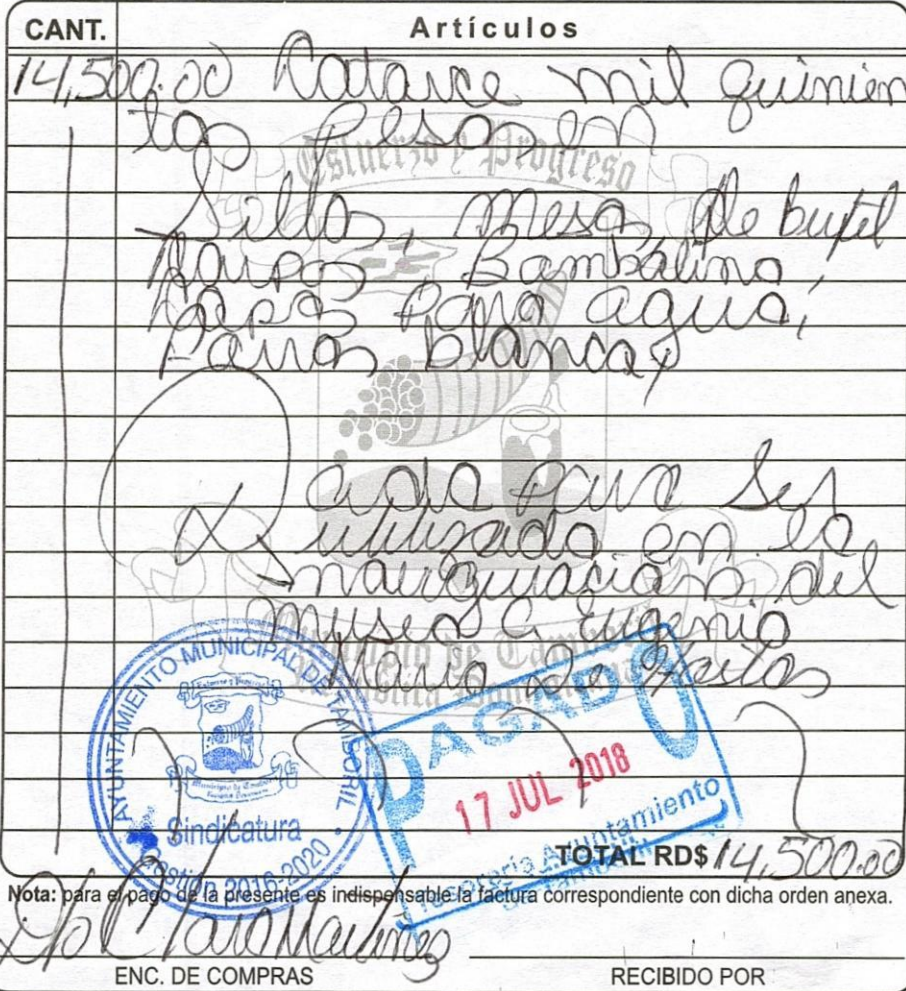 CANT. Artículos
14,500.00 Catorce mil quinien
tos pesos en
Esfuerzo y Progreso
Sillas, mesa de bufet
Bambalina,
para agua,
blancas
para ser
utilizado en la
inauguración del
museo a Eugenio
Municipio de Tamboril
María De Hostos
República Dominicana
AYUNTAMIENTO MUNICIPAL DE TAMBORIL
Sindicatura
Gestión 2016-2020
PAGADO
17 JUL 2018
Tesorería Ayuntamiento
TOTAL RD$ 14,500.00
Nota: para el pago de la presente es indispensable la factura correspondiente con dicha orden anexa.
ENC. DE COMPRAS RECIBIDO POR